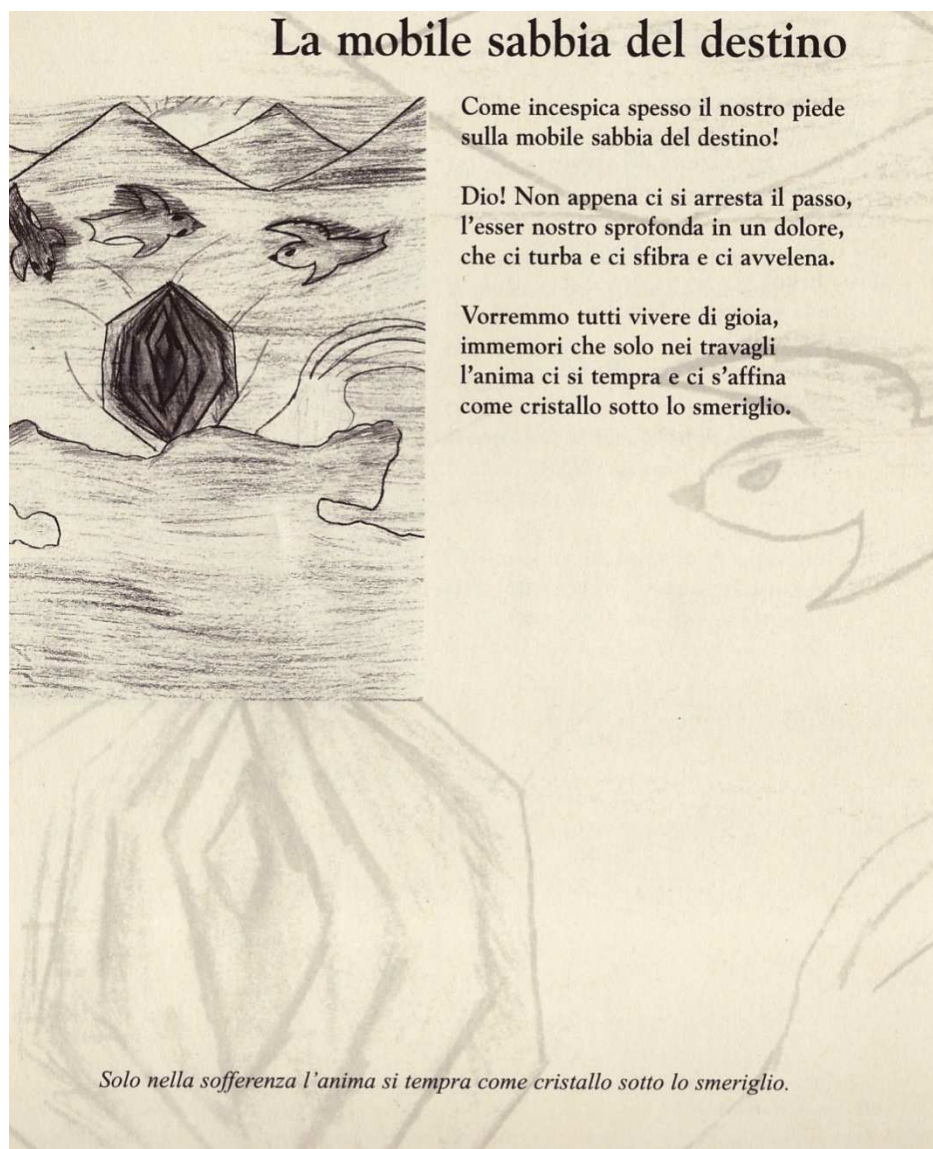 La mobile sabbia del destino
Come incespica spesso il nostro piede
sulla mobile sabbia del destino!
Dio! Non appena ci si arresta il passo,
l’esser nostro sprofonda in un dolore,
che ci turba e ci sfibra e ci avvelena.
Vorremmo tutti vivere di gioia,
immemori che solo nei travagli
l’anima ci si tempra e ci s’affina
come cristallo sotto lo smeriglio.
Solo nella sofferenza l’anima si tempra come cristallo sotto lo smeriglio.